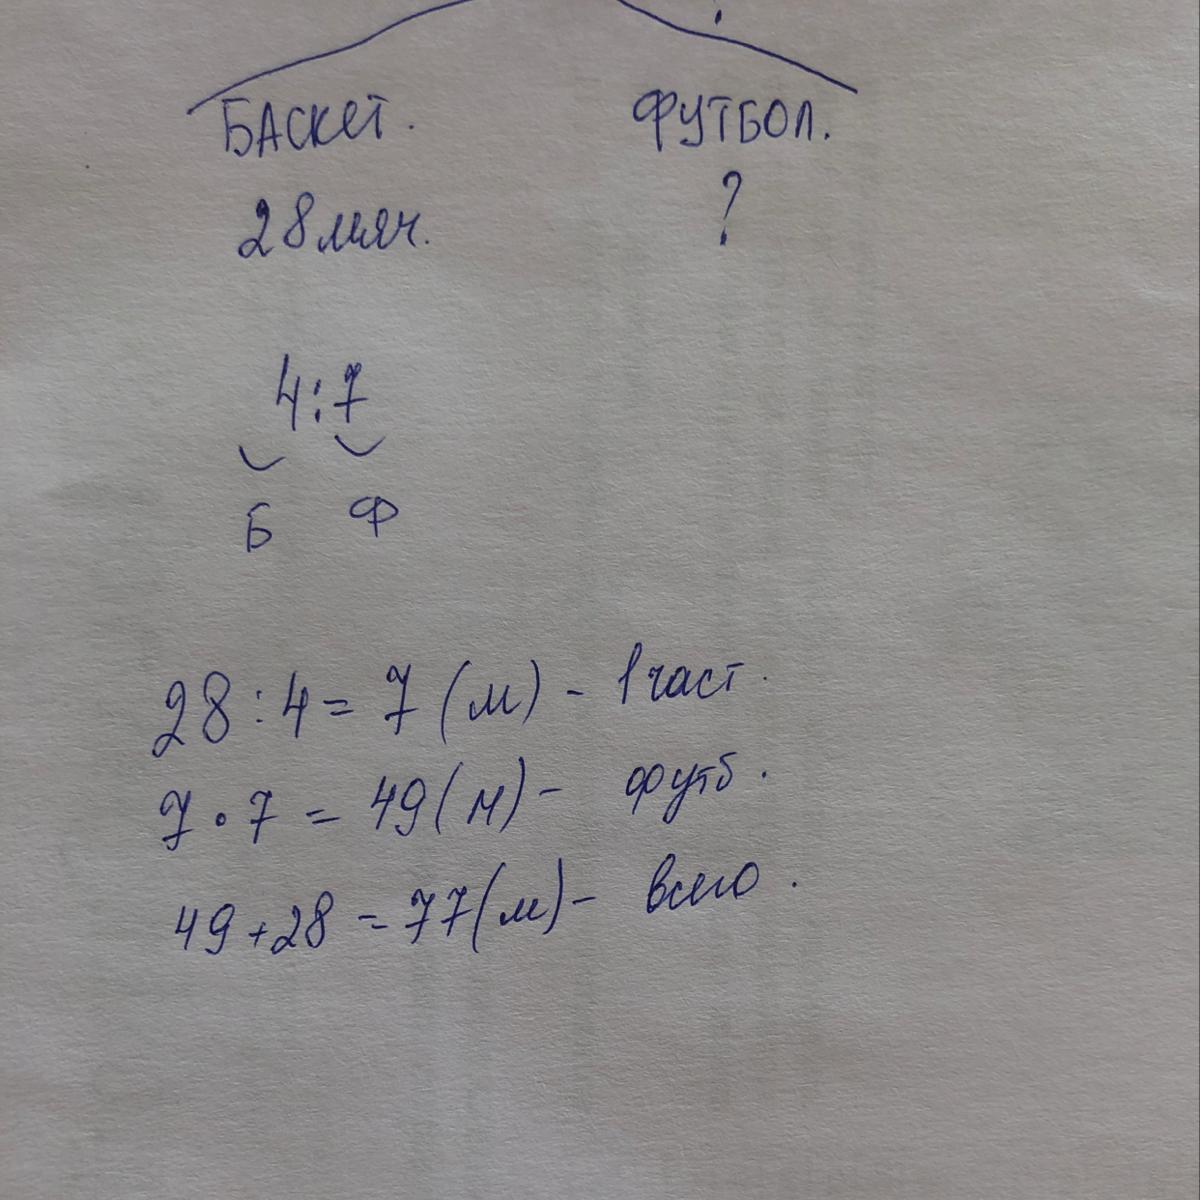 БАСКЕТ. ФУТБОЛ.
28 мяч. ?
4:7
Б Ф
28:4=7(м)- 1част.
7·7=49(м)- футб.
49+28=77(м)- всего.